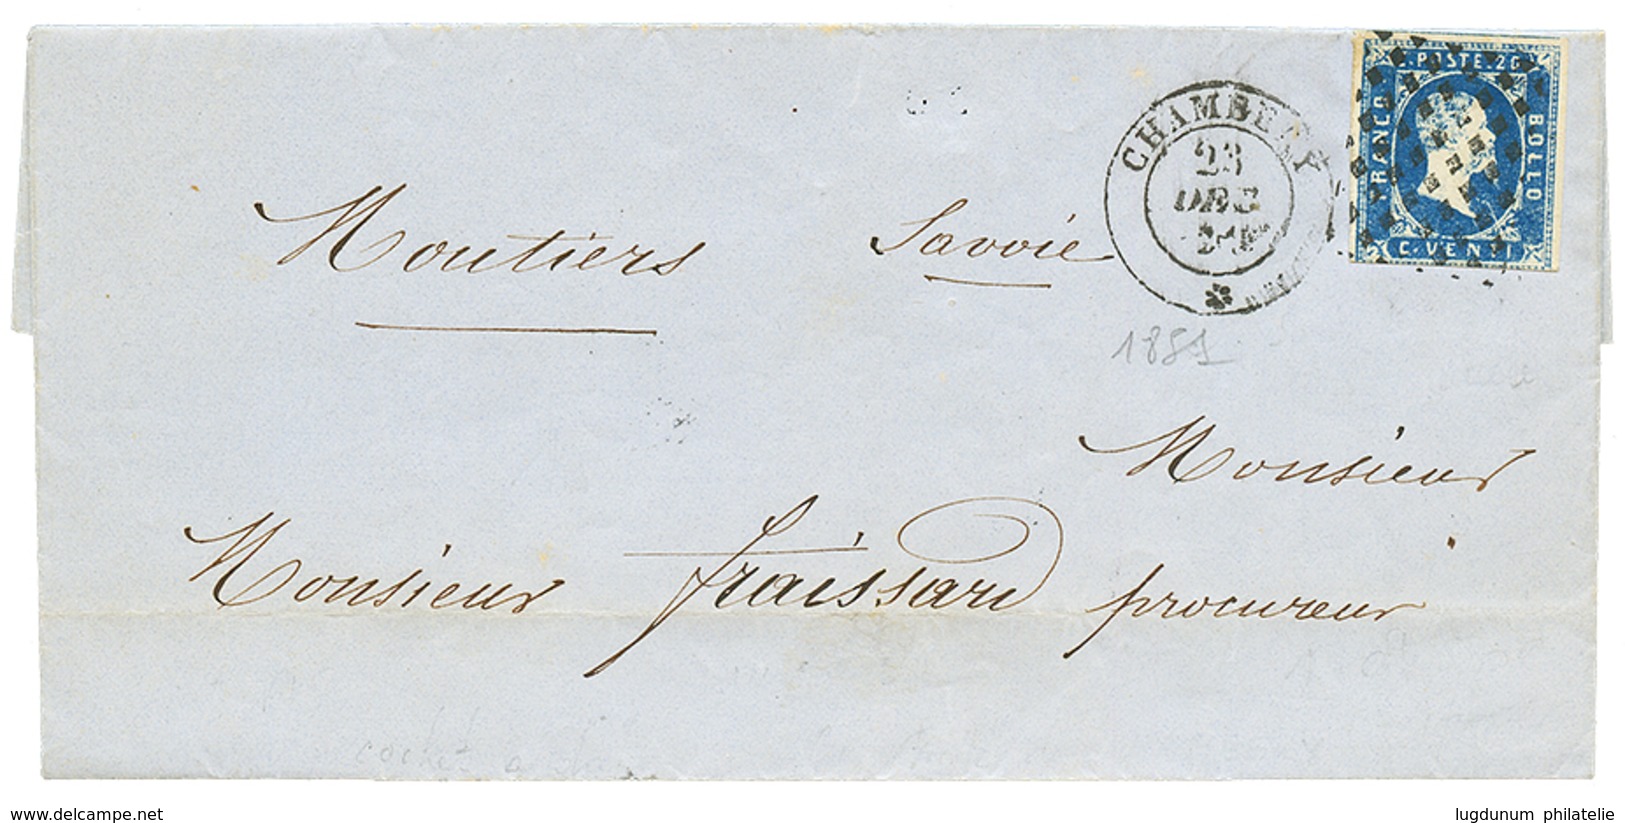 C. POSTE. 20
FRANCO
BOLLO
C. VENTI
CHAMBERY
23
DEC
Moutiers Savoie
1851
Monsieur
Monsieur fraissard procureur
www.delcampe.net
lugdunum philatelie